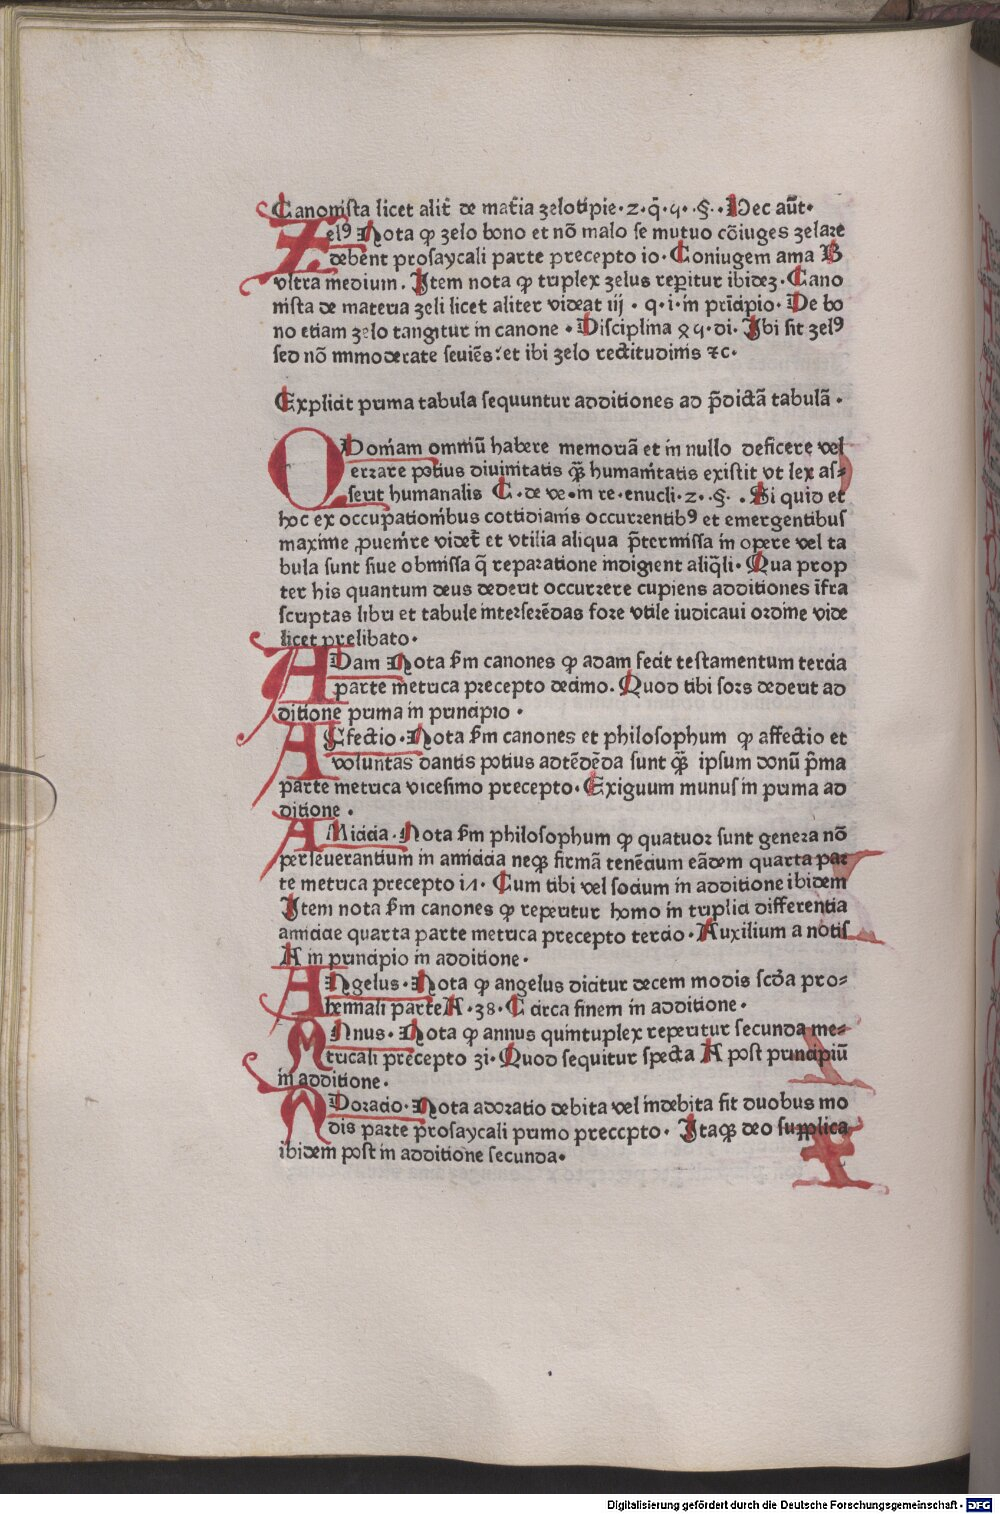 Canonista licet alit̃ de mat̃ia zelotipie·2·q̃·4··§··Hec aut̃·
Zelꝰ Nota ꝙ zelo bono et nõ malo se mutuo cõiuges zelare
debent prosaycali parte precepto io·Coniugem ama B
vltra medium. Item nota ꝙ triplex zelus reꝑitur ibidez·Cano
nista de materia zeli licet aliter videat iij · q·i·in pricipio·De bo
no etiam zelo tangitur in canone·Disciplina ·di·Ibi sit zelꝰ
sed nõ immoderate seuiẽs:et ibi zelo rectitudinis ⁊c·
Explicit prima tabula sequuntur additiones ad p̃dictã tabulã·
QVoniam omniũ habere memoriã et in nullo deficere vel
errare potius diuinitatis qͣ̃ humanitatis existit vt lex as⸗
serit humanalis C·de ve·in re·enucli·2··§··Si quid et
hoc ex occupationibus cottidianis occurrentibꝰ et emergentibus
maxime ꝓuenire videt̃ et vtilia aliqua p̃termissa in opere vel ta
bula sunt siue obmissa q̃ reparatione indigient aliq̃li·Qua prop
ter his quantum deus dederit occurrere cupiens additiones ĩfra
scriptas libri et tabule interserẽdas fore vtile iudicaui ordine vide
licet prelibato·
ADam Nota s̃m canones ꝙ adam fecit testamentum tercia
parte metrica precepto decimo·Quod tibi sors dederit ad
ditione prima in principio·
AFfectio·Nota s̃m canones et philosophum ꝙ affectio et
voluntas dantis potius adtẽdẽda sunt qͣ̃ ipsum donũ p̃ma
parte metrica vicesimo precepto·Exiguum munus in prima ad
ditione·
AMicicia·Nota s̃m philosophum ꝙ quatuor sunt genera nõ
perseuerantium in amicicia neqꝫ firmã tenẽcium eãdem quarta par
te metrica precepto i4·Cum tibi vel socium in additione ibidem
Item nota s̃m canones ꝙ reperitur homo in triplici differentia
amiciciae quarta parte metrica precepto tercio·Auxilium a notis
A in principio in additione·
ANgelus·Nota ꝙ angelus dicitur decem modis scd̃a pro⸗
hennali parte A·38·C circa finem in additione·
ANnus·Nota ꝙ annus quintuplex reperitur secunda me⸗
tricali precepto 3i·Quod sequitur specta A post principiũ
in additione·
ADoracio·Nota adoratio debita vel indebita fit duobus mo
dis parte prosaycali primo preccpto·Itaqꝫ deo supplica
ibidem post in additione secunda·
Digitalisierung gefördert durch die Deutsche Forschungsgemeinschaft · DFG